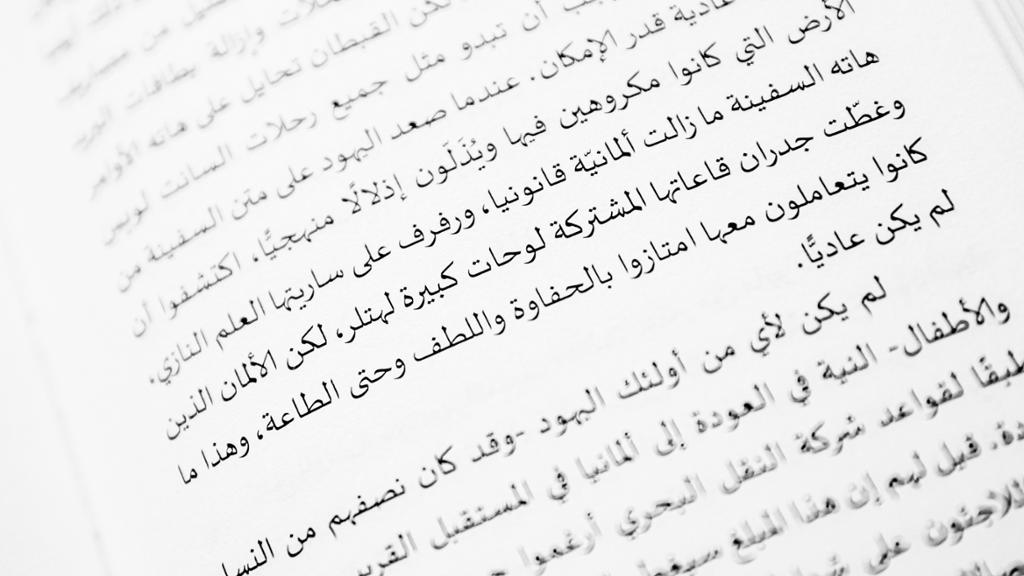 لكن القبطان تحايل على هاته الأوامر
أن تبدو مثل جميع رحلات السانت لويس
عادية قدر الإمكان. عندما صعد اليهود على متن السفينة من
الأرض التي كانوا مكروهين فيها ويُذَلّون إذلالًا منهجيًّا، اكتشفوا أن
هاته السفينة ما زالت ألمانيّة قانونيا، ورفرف على ساريتها العلم النازي.
وغطّت جدران قاعاتها المشتركة لوحات كبيرة لهتلر، لكن الألمان الذين
كانوا يتعاملون معها امتازوا بالحفاوة واللطف وحتى الطاعة، وهذا ما
لم يكن عاديًّا.
لم يكن لأي من أولئك اليهود -وقد كان نصفهم من النسا
والأطفال- النية في العودة إلى ألمانيا في المستقبل القريب
طبقًا لقواعد شركة النقل البحري أرغموا
قيل لهم إن هذا المبلغ
اللاجئون على